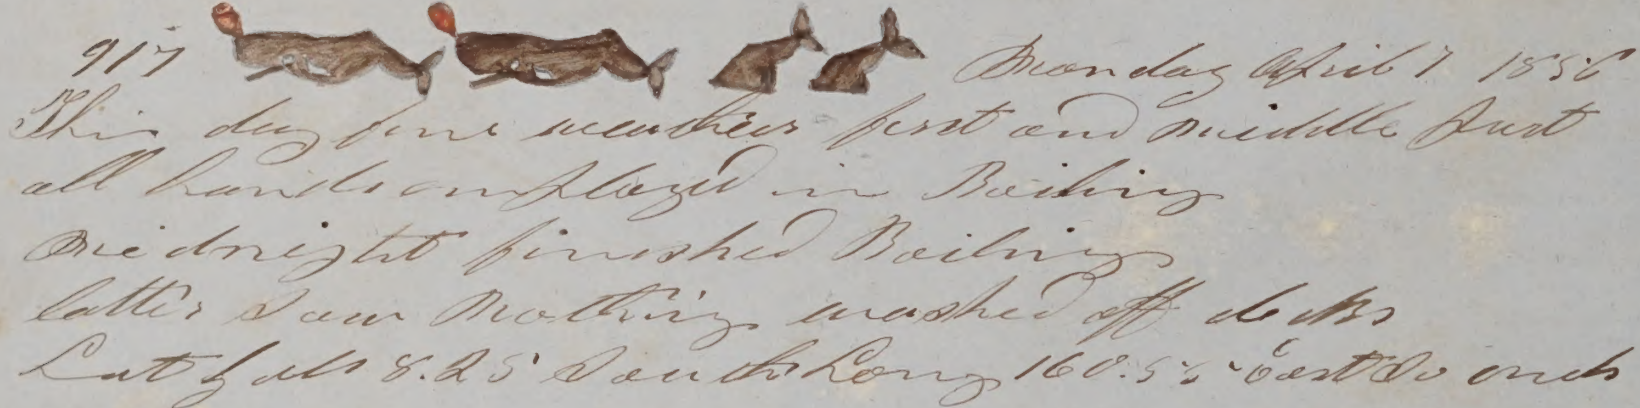 917 Monday April 7 1856
This day fine weather first and middle part
all hands employed in Boiling
midnight finished Boiling
latter saw Nothing washed off decks
Lat by obs 8.25 South Long 160.55 East So ends